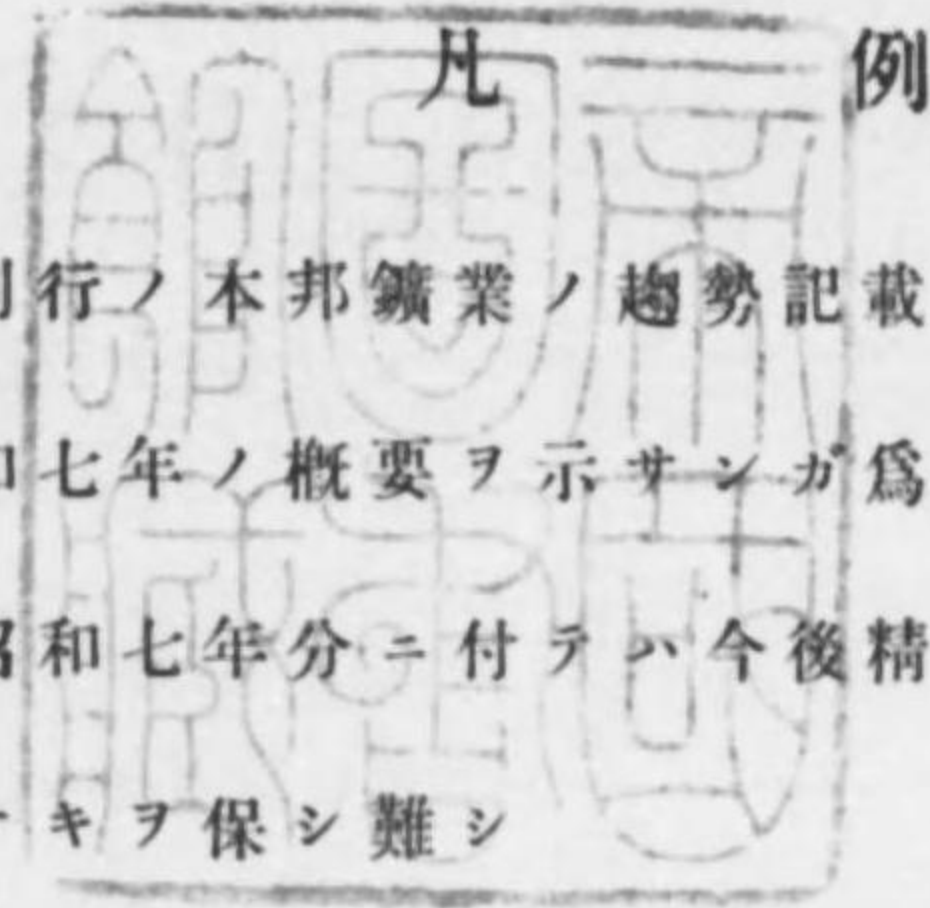 凡例
行ノ本邦鑛業ノ趨勢記載
七年ノ概要ヲ示サンガ爲
和七年分ニ付テハ今後精
キヲ保シ難シ